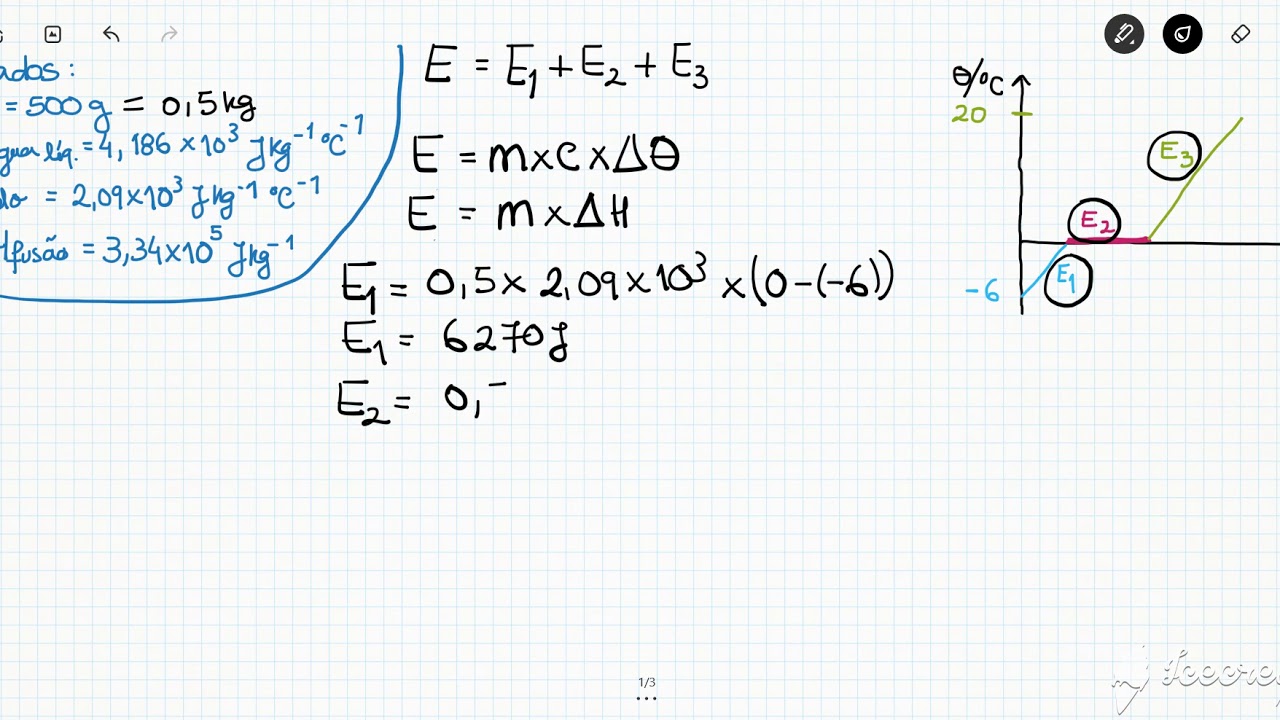 ados:
= 500 g = 0,5 kg
água líq. = 4,186 × 10³ J kg⁻¹ °C⁻¹
lo = 2,09 × 10³ J kg⁻¹ °C⁻¹
Hfusão = 3,34 × 10⁵ J kg⁻¹
E = E₁ + E₂ + E₃
E = m × c × Δθ
E = m × ΔH
E₁ = 0,5 × 2,09 × 10³ × (0 - (-6))
E₁ = 6270 J
E₂ = 0,
θ/°C
20
E₃
E₂
E₁
-6
1/3